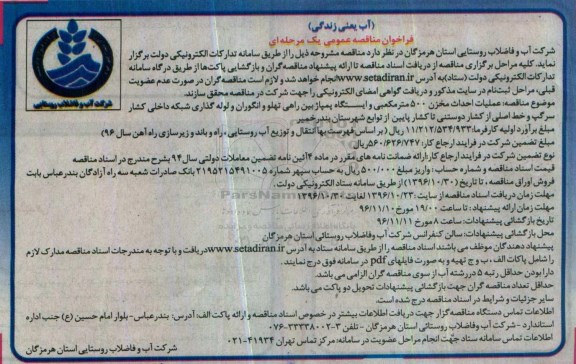 (آب یعنی زندگی)
فراخوان مناقصه عمومی یک مرحله ای
شرکت آب و فاضلاب روستایی استان هرمزگان در نظر دارد مناقصه مشروحه ذیل را از طریق سامانه تدارکات الکترونیکی دولت برگزار
نماید. کلیه مراحل برگزاری مناقصه از دریافت اسناد مناقصه تا ارائه پیشنهاد مناقصه گران و بازگشایی پاکت‌ها از طریق درگاه سامانه
تدارکات الکترونیکی دولت (ستاد) به آدرس www.setadiran.ir انجام خواهد شد و لازم است مناقصه گران در صورت عدم عضویت
قبلی، مراحل ثبت‌نام در سایت مذکور و دریافت گواهی امضای الکترونیکی را جهت شرکت در مناقصه محقق سازند.
موضوع مناقصه: عملیات احداث مخزن ۵۰۰ مترمکعبی و ایستگاه پمپاژ بین راهی تهلو و انگوران و لوله گذاری شبکه داخلی کشار
سرگپ و خط اصلی از کشار دوستنی تا کشار پایین از توابع شهرستان بندرخمیر
مبلغ برآورد اولیه کارفرما: ۱۱/۲۱۲/۵۳۴/۹۳۳ ریال (بر اساس فهرست بها انتقال و توزیع آب روستایی، راه و باند و زیرسازی راه آهن سال ۹۶)
مبلغ تضمین شرکت در فرایند ارجاع کار: ۵۶۰/۶۲۶/۷۴۷ ریال
نوع تضمین شرکت در فرایند ارجاع کار: ارائه ضمانت نامه های مقرر در ماده ۴ آئین نامه تضمین معاملات دولتی سال ۹۴ بشرح مندرج در اسناد مناقصه
قیمت اسناد مناقصه و شماره حساب: واریز مبلغ ۵۰۰/۰۰۰ ریال به حساب سپهر شماره ۲۱۹۵۲۱۵۴۹۱۰۰۵ بانک صادرات شعبه سه راه آزادگان بندرعباس بابت
فروش اوراق مناقصه، تا تاریخ (۱۳۹۶/۱۰/۳۰) از طریق سامانه ستاد الکترونیکی دولت.
مهلت زمان دریافت اسناد مناقصه از سایت: ۱۳۹۶/۱۰/۲۳ لغایت ۱۳۹۶/۱۰/۳۰
مهلت زمان ارائه پیشنهاد: تا ساعت ۱۹/۰۰ مورخ ۹۶/۱۱/۱۰
تاریخ بازگشائی پیشنهادات: ساعت ۸ مورخ ۹۶/۱۱/۱۱
محل بازگشائی پیشنهادات: سالن کنفرانس شرکت آب وفاضلاب روستائی استان هرمزگان
پیشنهاد دهندگان موظف می باشند اسناد مناقصه را از طریق سامانه ستاد به آدرس www.setadiran.ir دریافت و با توجه به مندرجات اسناد مناقصه مدارک لازم
را شامل پاکات الف ، ب و ج تهیه و به صورت فایلهای pdf در سامانه فوق درج نمایند.
دارا بودن حداقل رتبه ۵ در رشته آب از سوی مناقصه گران الزامی می باشد.
حداقل تعداد مناقصه گران جهت بازگشائی پیشنهادات تحویل دو پاکت می باشد.
سایر جزئیات و شرایط در اسناد مناقصه درج شده است.
اطلاعات تماس دستگاه مناقصه گزار جهت دریافت اطلاعات بیشتر در خصوص اسناد مناقصه و ارائه پاکت الف: آدرس: بندرعباس- بلوار امام حسین (ع) جنب اداره
استاندارد - شرکت آب و فاضلاب روستائی استان هرمزگان - تلفن ۳-۳۳۳۳۸۰۰۲-۰۷۶
اطلاعات تماس سامانه ستاد جهت انجام مراحل عضویت در سامانه: مرکز تماس تهران ۴۱۹۳۴-۰۲۱
شرکت آب و فاضلاب روستایی استان هرمزگان
شرکت آب و فاضلاب روستایی